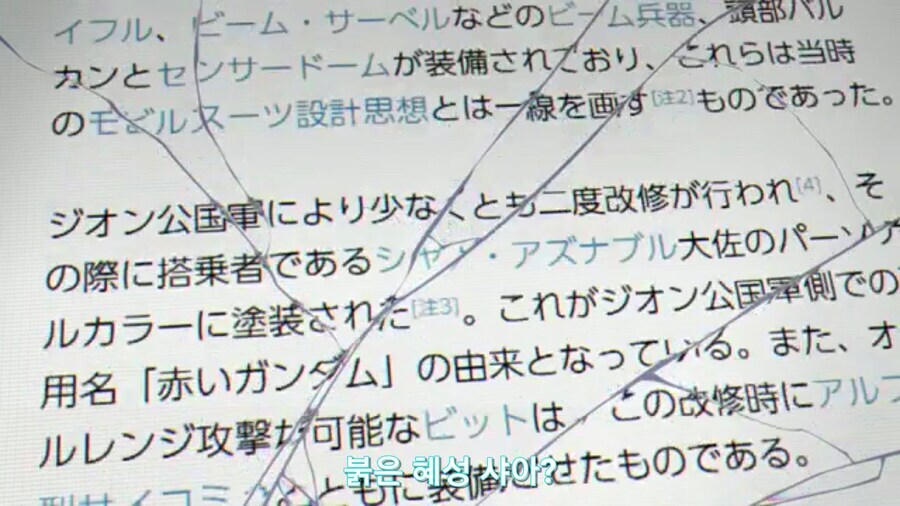 イフル、ビーム・サーベルなどのビーム兵器、頭部バル
カンとセンサードームが装備されており、これらは当時
のモビルスーツ設計思想とは一線を画す[注2]ものであった。
ジオン公国軍により少なくとも二度改修が行われ[4]、そ
の際に搭乗者であるシャア・アズナブル大佐のパーソナ
ルカラーに塗装された[注3]。これがジオン公国軍側での
用名「赤いガンダム」の由来となっている。また、オ
ルレンジ攻撃が可能なビットは、この改修時にアルフ
型サイコミュとともに装備させたものである。
붉은 혜성 샤아?